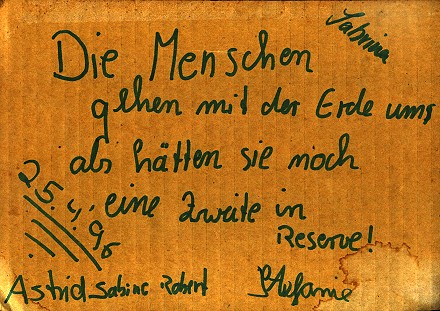 Sabrina
Die Menschen
gehen mit der Erde um,
als hätten sie noch
eine Zweite in
Reserve!
25.4.90
Astrid Sabine Robert Stefanie